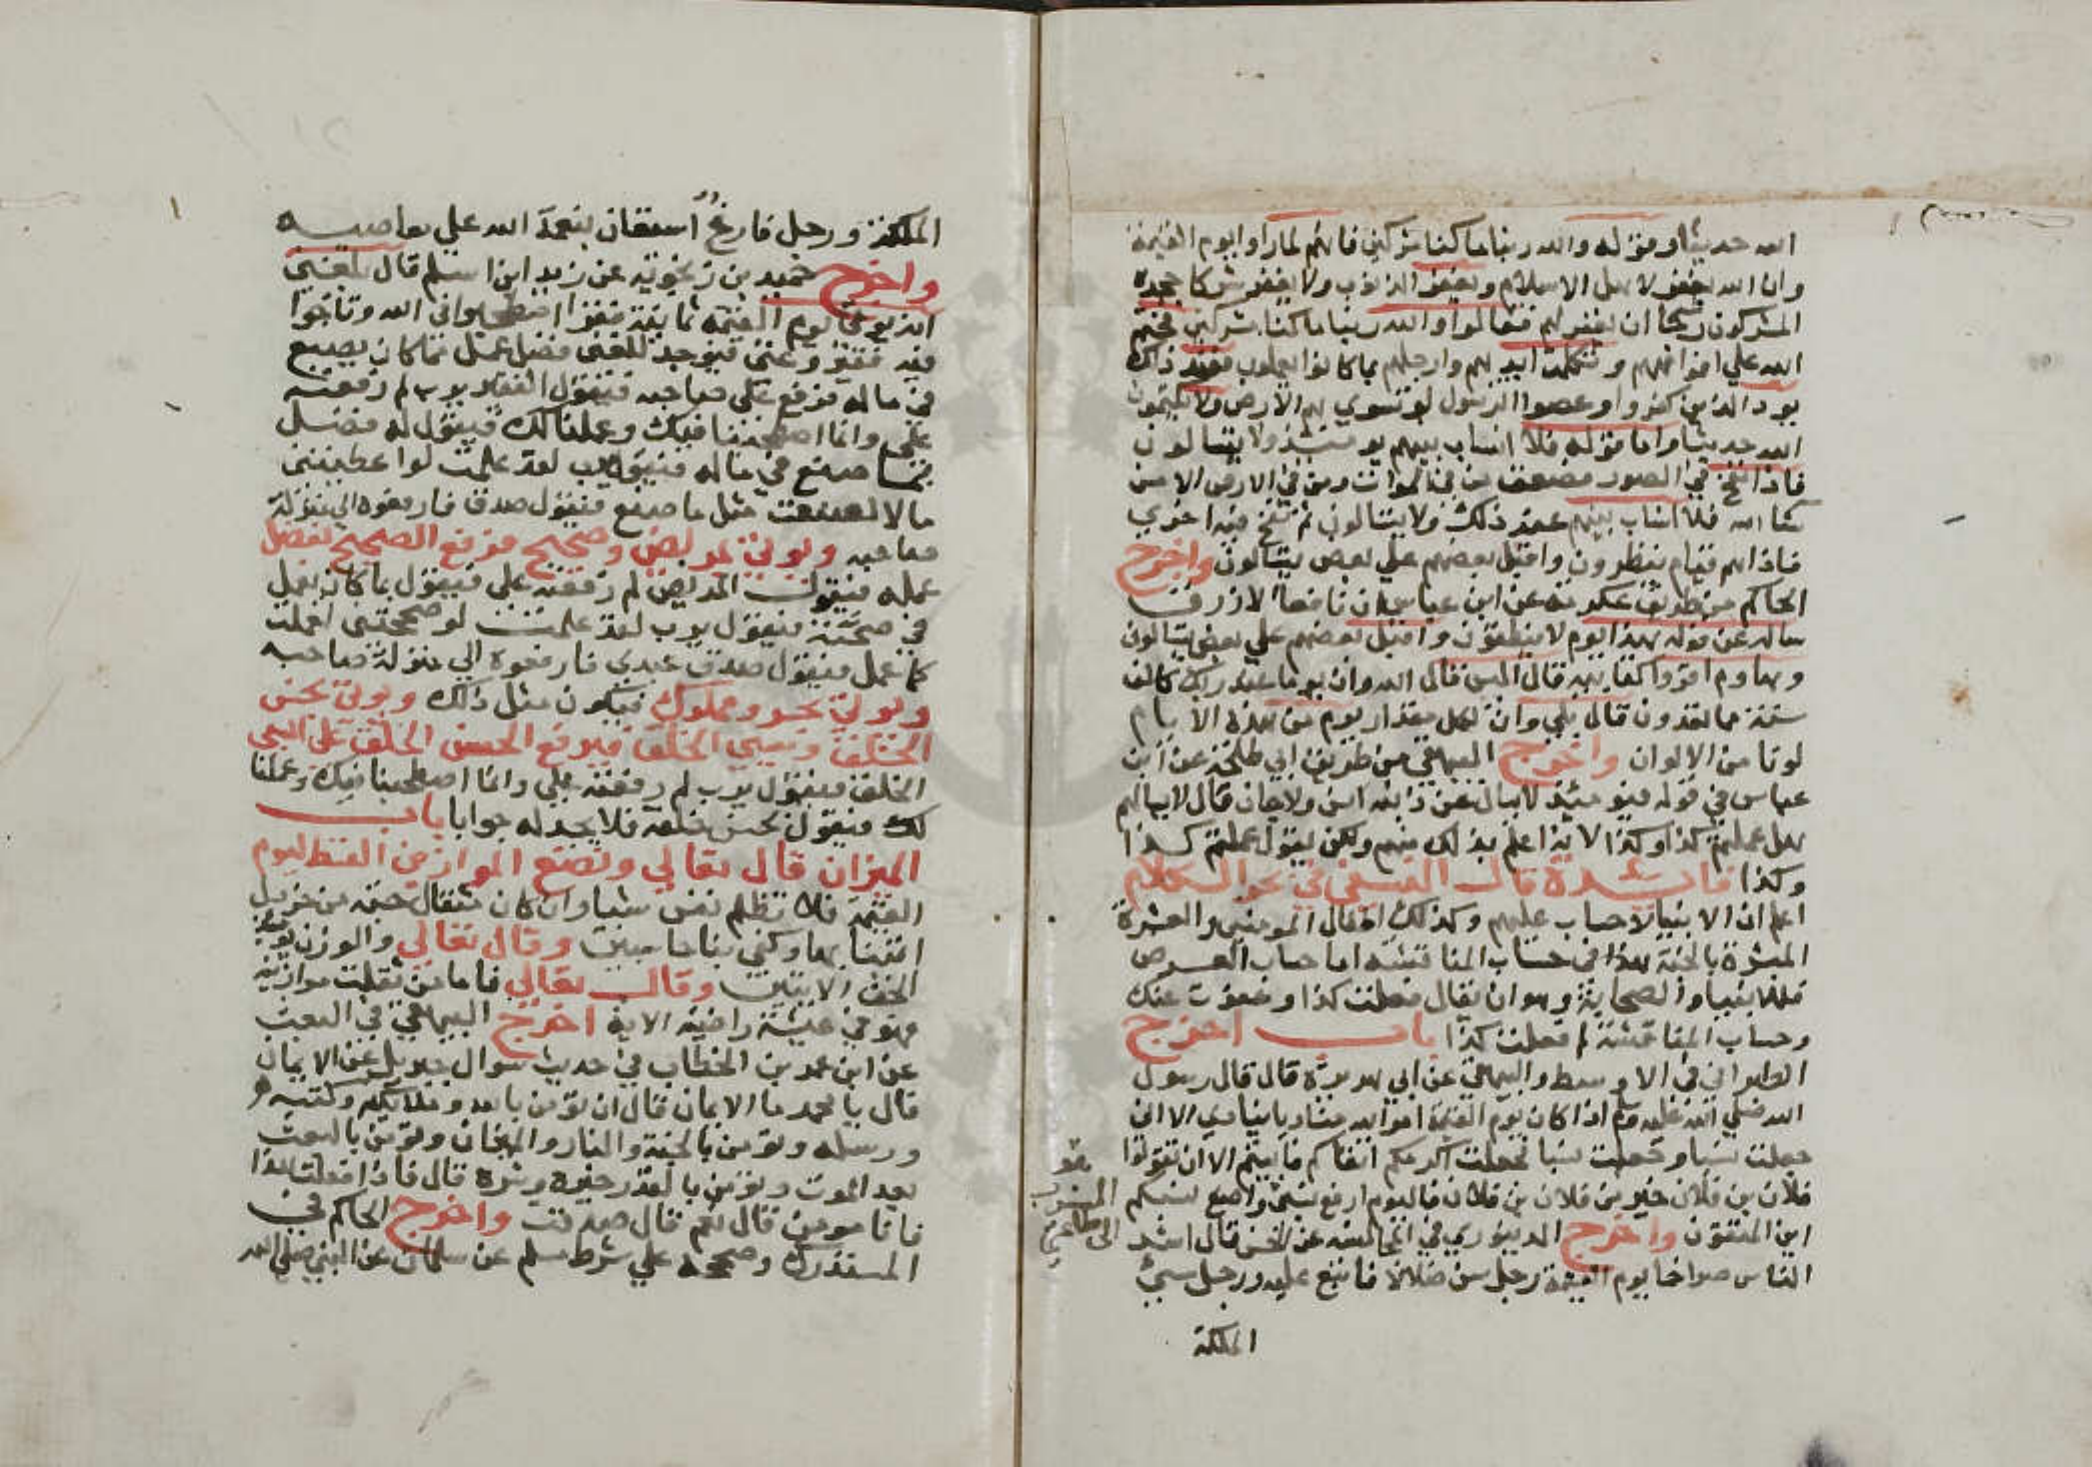 الله حديثا وقوله والله ربنا ما كنا مشركين فانهم لما راوا يوم القيمة
وان الله يغفر لاهل الاسلام ويغفر الذنوب ولا يغفر شركا جحده
المشركون رجا ان يغفر لهم فقالوا والله ربنا ما كنا مشركين فختم
الله علي افواههم وتكلمت ايديهم وارجلهم بما كانوا يعملون فعند ذلك
يود الذين كفروا وعصوا الرسول لو تسوي بهم الارض ولا يكتمون
الله حديثا واما قوله فلا انساب بينهم يومئذ ولا يتسالون
فاذا نفخ في الصور فصعق من في السموات ومن في الارض الا من
شا الله فلا انساب بينهم عند ذلك ولا يتسالون ثم نفخ فيه اخري
فاذا هم قيام ينظرون واقبل بعضهم علي بعض يتسالون واخرج
الحاكم من طريق عكرمة عن ابن عباس ان نافعا الازرق
ساله عن قوله هذا يوم لا ينطقون واقبل بعضهم علي بعض يتسالون
وهاوم اقروا كتابيه قال اليس قال الله وان يوما عند ربك كالف
سنة مما تعدون قال بلي وان لكل مقدار يوم من هذه الايام
لونا من الالوان واخرج البيهقي من طريق ابي طلحة عن ابن
عباس في قوله فيومئذ لا يسال عن ذنبه انس ولا جان قال لا يسالهم
هل عملتم كذا وكذا لانه اعلم بذلك منهم ولكن يقول عملتم كذا
وكذا فايدة قال النسفي في بحر الكلام
اعلم ان الانبيا لا حساب عليهم وكذلك اطفال المومنين والعشرة
المبشرة بالجنة هذا في حساب المناقشة اما حساب العرض
فللانبيا والصحابة وهو ان يقال فعلت كذا وعفوت عنك
وحساب المناقشة لم فعلت كذا باب اخرج
الطبراني في الاوسط والبيهقي عن ابي هريرة قال قال رسول
الله صلي الله عليه وسلم اذا كان يوم القيمة امر الله مناديا ينادي الا اني
جعلت نسبا وجعلت نسبا فجعلت اكرمكم اتقاكم فابيتم الا ان تقولوا
فلان بن فلان خير من فلان بن فلان فاليوم ارفع نسبي واضع نسبكم
اين المتقون واخرج الدينوري في المجالسة عن الحسن قال اشد
الناس صراخا يوم القيمة رجل سن ضلالة فاتبع عليه ورجل سيئ
الملكة
الملكة ورجل فارغ استعان بنعمة الله علي معاصيه
واخرج حميد بن زنجويه عن زيد ابن اسلم قال بلغني
انه يوتي يوم القيمة ثمانية نفر اصطحبوا في الله وتاخوا
فيه فقير وغني فيوجد للغني فضل عمل مما كان يصنع
في ماله فرفع علي صاحبه فيقول الفقير يرب لم رفعته
علي وانما اصطحبنا فيك وعملنا لك فيقول له فضل
بما صنع في ماله فيقول يرب لقد علمت لو اعطيتني
مالا لصنعت مثل ما صنع فيقول صدق فارفعوه الي منزلة
صاحبه ويوتي بمريض وصحيح فرفع الصحيح بفضل
عمله فيقول المريض لم رفعته علي فيقول بما كان يعمل
في صحته فيقول يرب لقد علمت لو صححتني لعملت
كما عمل فيقول صدق عبدي فارفعوه الي منزلة صاحبه
ويوتي بحر ومملوك فيكون مثل ذلك ويوتي بحسن
الخلق وسيي الخلق فيرفع الحسن الخلق علي السي
الخلق فيقول يرب لم رفعته علي وانما اصطحبنا فيك وعملنا
لك فيقول بحسن خلقه فلا يجد له جوابا باب
الميزان قال تعالي ونضع الموازين القسط ليوم
القيمة فلا تظلم نفس شيا وان كان مثقال حبة من خردل
اتينا بها وكفي بنا حاسبين وقال تعالي والوزن يومئذ
الحق الايتين وقال تعالي فاما من ثقلت موازينه
فهو في عيشة راضية الاية اخرج البيهقي في البعث
عن ابن عمر بن الخطاب في حديث سوال جبريل عن الايمان
قال يا محمد ما الايمان قال ان تومن بالله وملائكته وكتبه
ورسله وتومن بالجنة والنار والميزان وتومن بالبعث
بعد الموت وتومن بالقدر خيره وشره قال فاذا فعلت هذا
فانا مومن قال نعم قال صدقت واخرج الحاكم في
المستدرك وصححه علي شرط مسلم عن سلمان عن النبي صلي الله